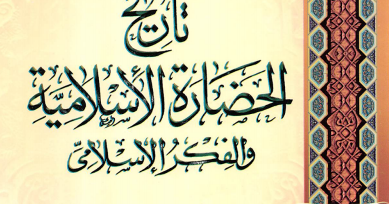 تاريخ
الحضارة الأسلامية
والفكر الإسلامي